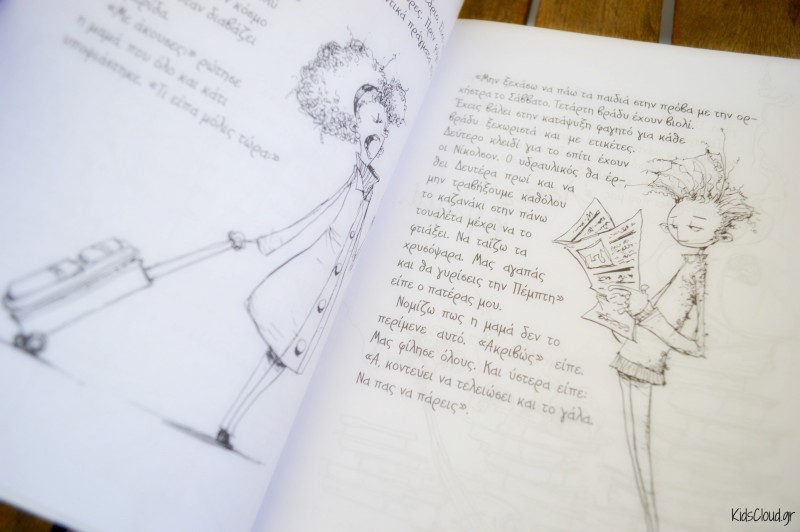 κόσμο
διαβάζει
«Με άκουσες;» ρώτησε
η μαμά, που όλο και κάτι
«Τι είπα μόλις τώρα;»
«Μην ξεχάσω να πάω τα παιδιά στην πρόβα με την ορ-
χήστρα το Σάββατο. Τετάρτη βράδυ έχουν βιολί.
Έχεις βάλει στην κατάψυξη φαγητό για κάθε
βράδυ ξεχωριστά και με ετικέτες.
Δεύτερο κλειδί για το σπίτι έχουν
οι Νίκολσον. Ο υδραυλικός θα έρ-
θει Δευτέρα πρωί και να
μην τραβήξουμε καθόλου
το καζανάκι στην πάνω
τουαλέτα μέχρι να το
φτιάξει. Να ταΐζω τα
χρυσόψαρα. Μας αγαπάς
και θα γυρίσεις την Πέμπτη»
είπε ο πατέρας μου.
Νομίζω πως η μαμά δεν το
περίμενε αυτό. «Ακριβώς» είπε.
Μας φίλησε όλους. Και ύστερα είπε:
«Α, κοντεύει να τελειώσει και το γάλα.
Να πας να πάρεις».
KidsCloud.gr